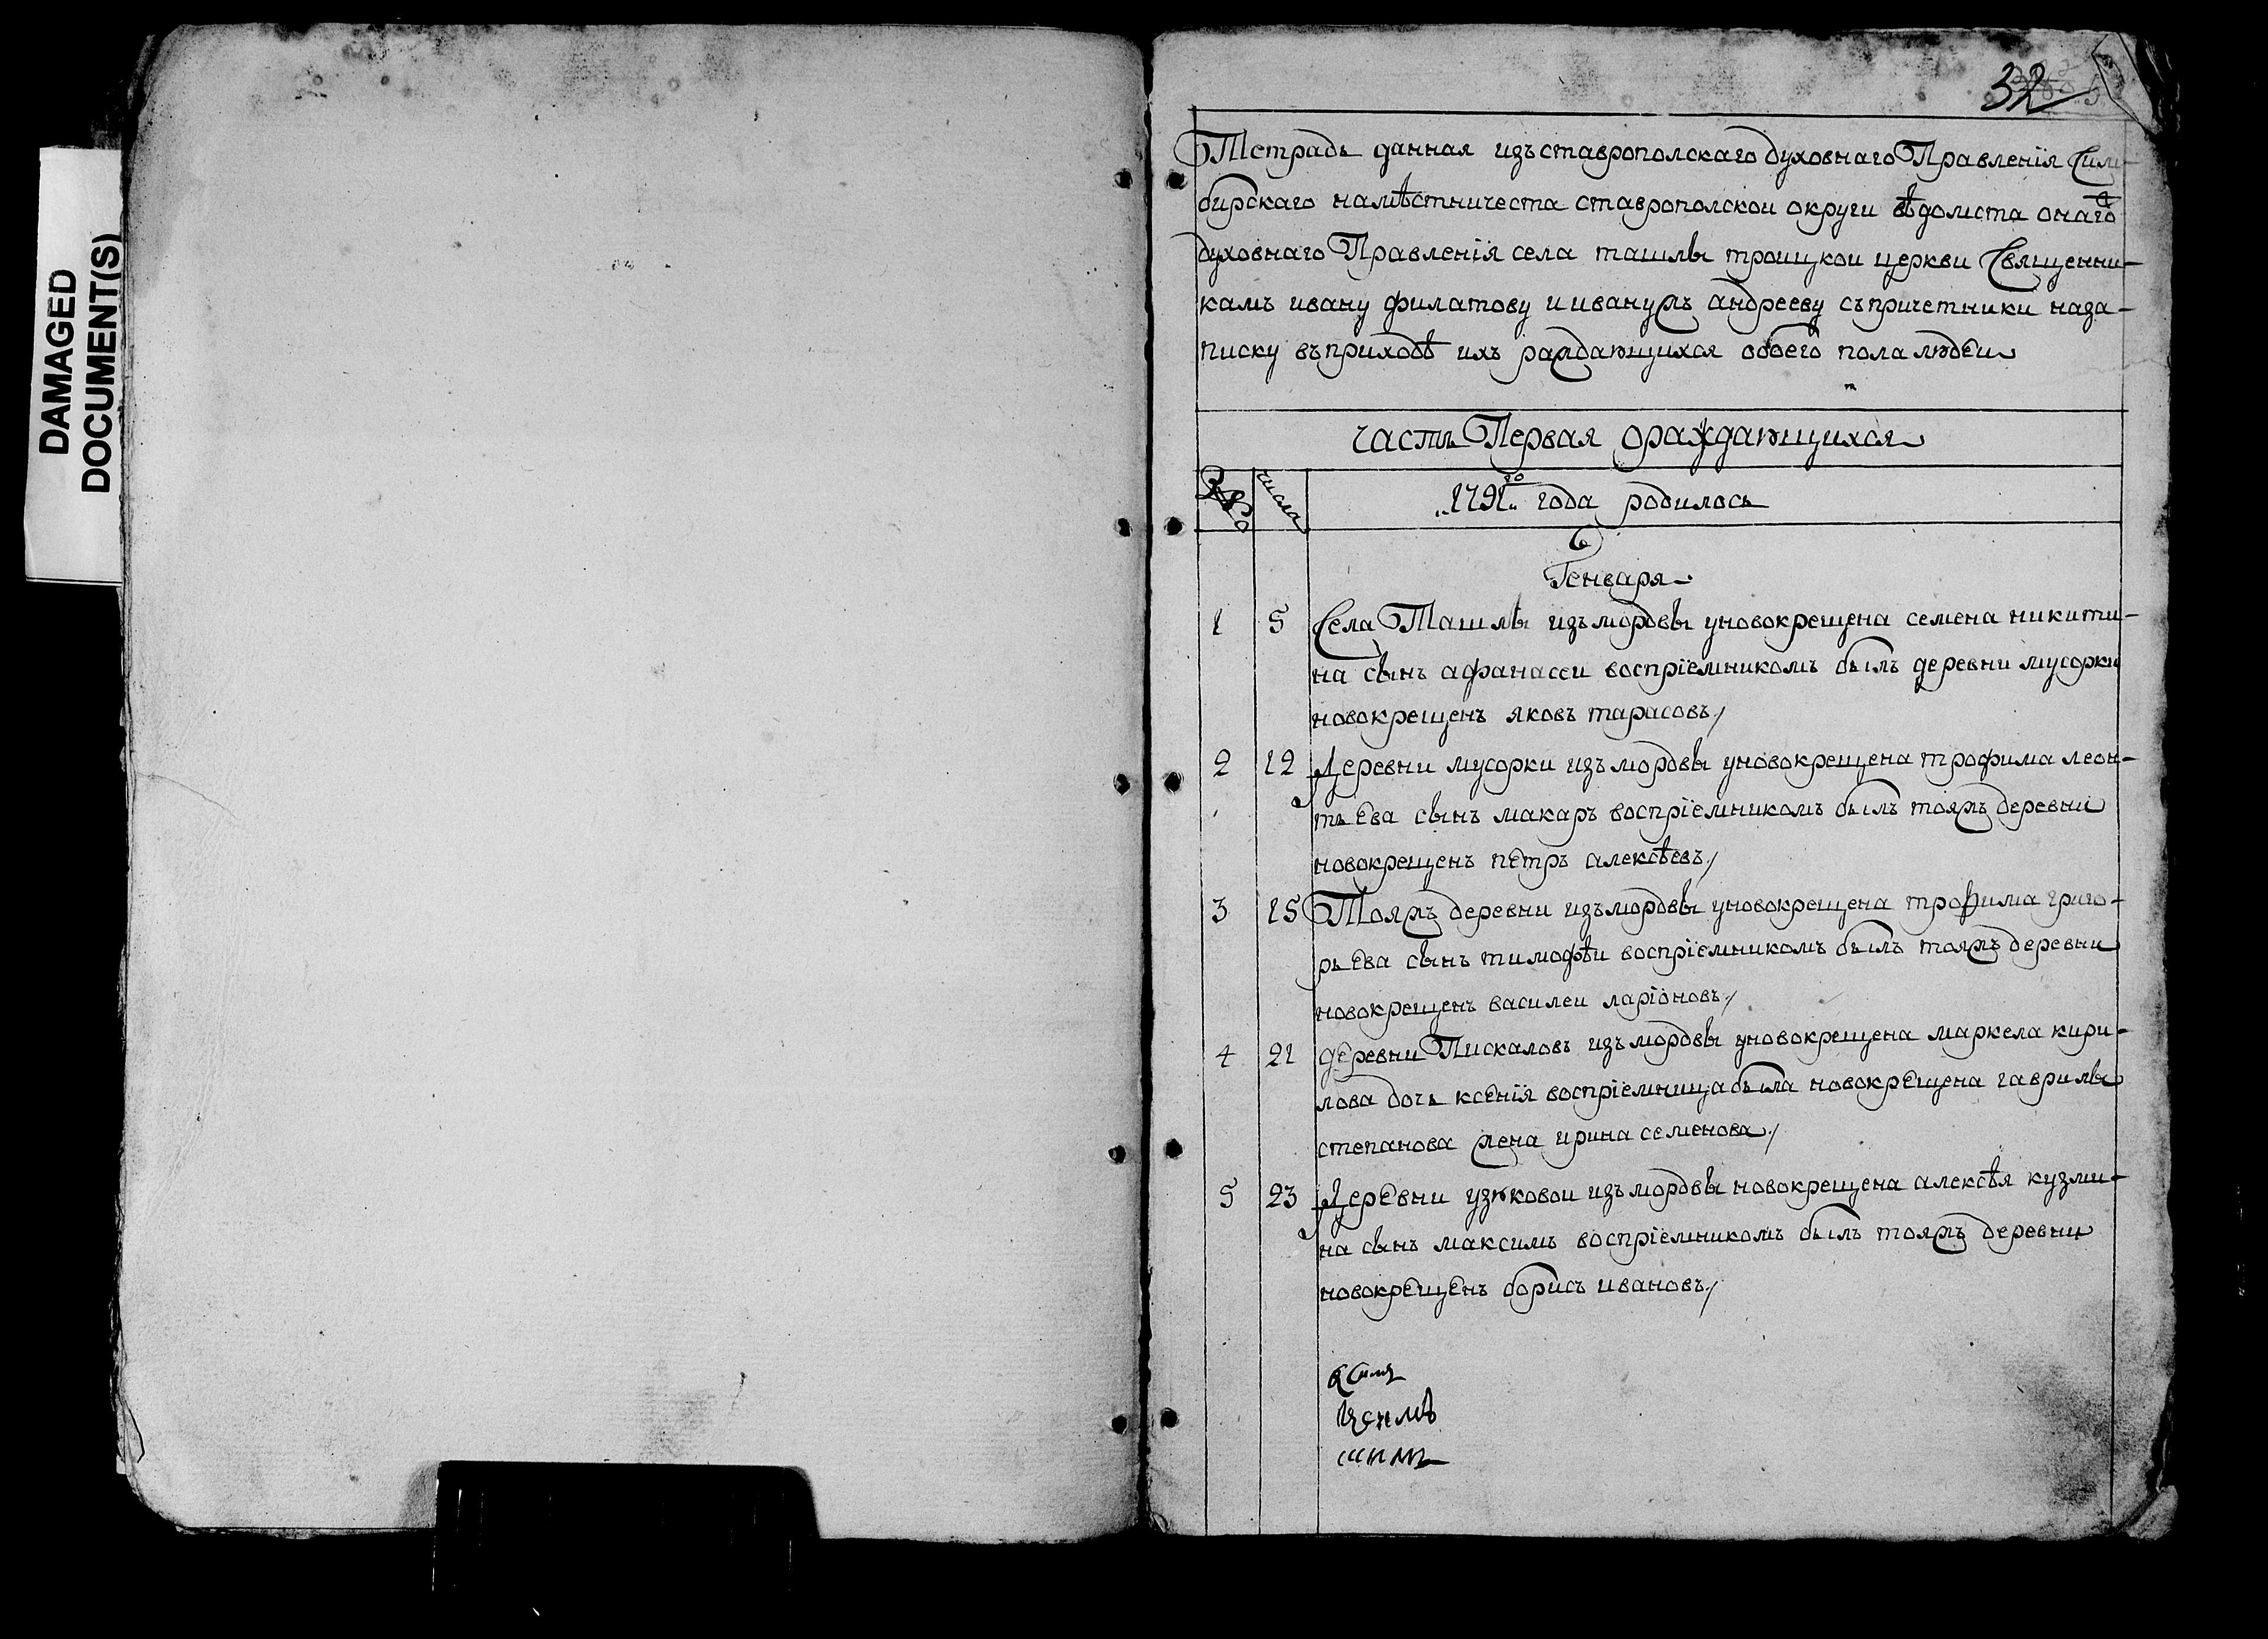 DAMAGED
DOCUMENT(S)
32
Тетрадь данная изъ ставрополскаго духовнаго Правленїя Сим-
бирскаго намѣстничеста ставрополскои округи вѣдомста онаго
духовнаго Правленїя села ташлы троицкои церкви Священни-
камъ ивану филатову и иванужъ андрееву съпричетники наза-
писку въприходѣ ихъ раждающихся обоего пола людеи
часть Первая ораждающихся
числа
1791 го года родилось
в
Генваря
1 5 Села Ташлы изъ мордвы уновокрещена семена никити-
на сынъ афанасеи воспрїемникомъ былъ деревни мусорки
новокрещенъ яковъ тарасовъ
2 12 Деревни мусорки изъ мордвы уновокрещена трофима леон-
тьева сынъ макаръ воспрїемникомъ былъ тояжъ деревни
новокрещенъ петръ алексѣевъ
3 15 Тояжъ деревни изъ мордвы уновокрещена трофима григо-
рьева сынъ тимофѣи воспрїемникомъ былъ тояжъ деревни
новокрещенъ василеи ларїоновъ
4 21 деревни Пискаловъ изъ мордвы уновокрещена маркела кири-
лова дочь ксенїя воспрїемница была новокрещена гаврилы
степанова жена ирина семенова
5 23 Деревни узюковои изъ мордвы новокрещена алексѣя кузми-
на сынъ максимъ воспрїемникомъ былъ тояжъ деревни
новокрещенъ борисъ ивановъ